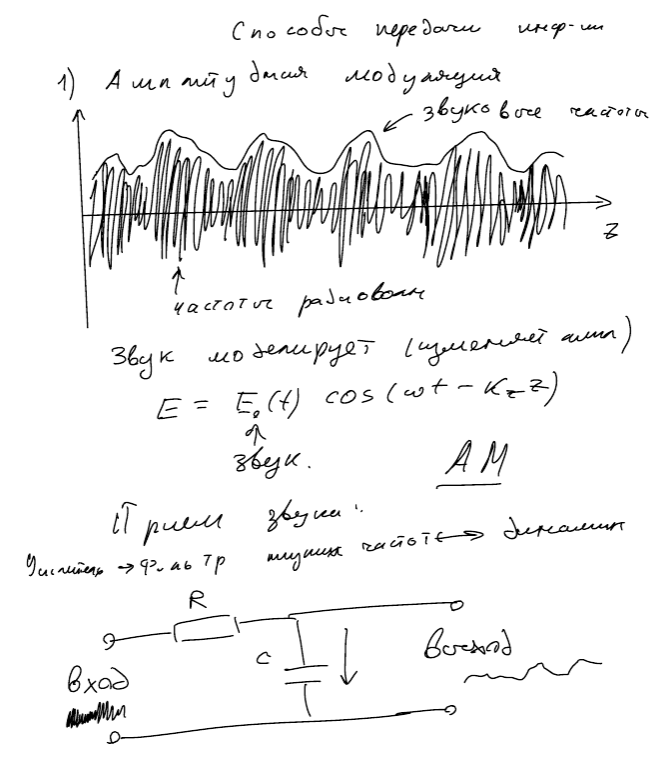 Способы передачи инф-ии
1) Амплитудная модуляция
звуковые частоты
z
частоты радиоволн
Звук моделирует (изменяет ампл)
E = E₀(t) cos(ωt − K_z z)
звук.
АМ
Прием звука:
Усилитель → фильтр низких частот ↔ динамик
R
C
вход
выход